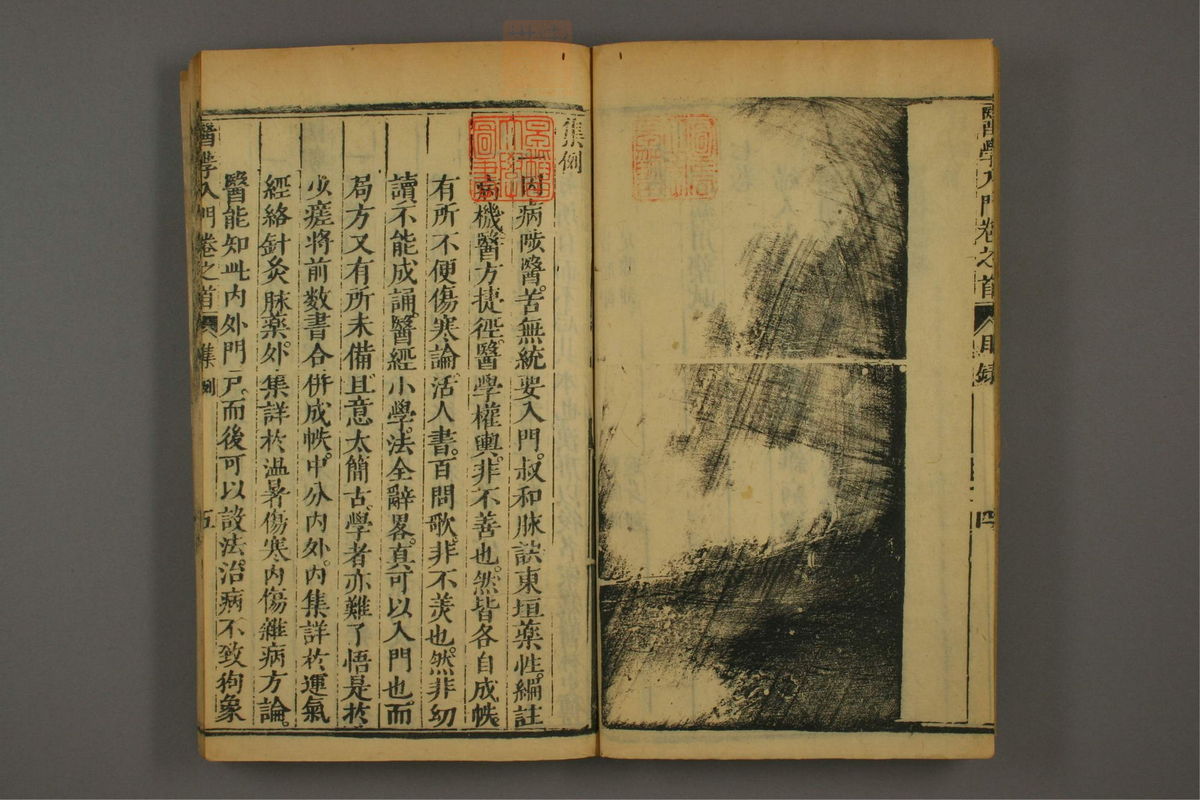 醫學入門卷之首
目錄
四
集例
一因病陟醫苦無統要入門叔和脉訣東垣藥性編註
病機醫方捷徑醫學權輿非不善也然皆各自成帙
有所不便傷寒論活人書百問歌非不羙也然非幼
讀不能成誦醫經小學法全辭畧真可以入門也而
局方又有所未備且意太簡古學者亦難了悟是扵
少瘥將前数書合併成帙中分内外内集詳扵運氣
經絡針灸脉藥外集詳扵温暑傷寒内傷雜病方論
醫能知此内外門戸而後可以設法治病不致狥象
醫學入門卷之首
集例
五